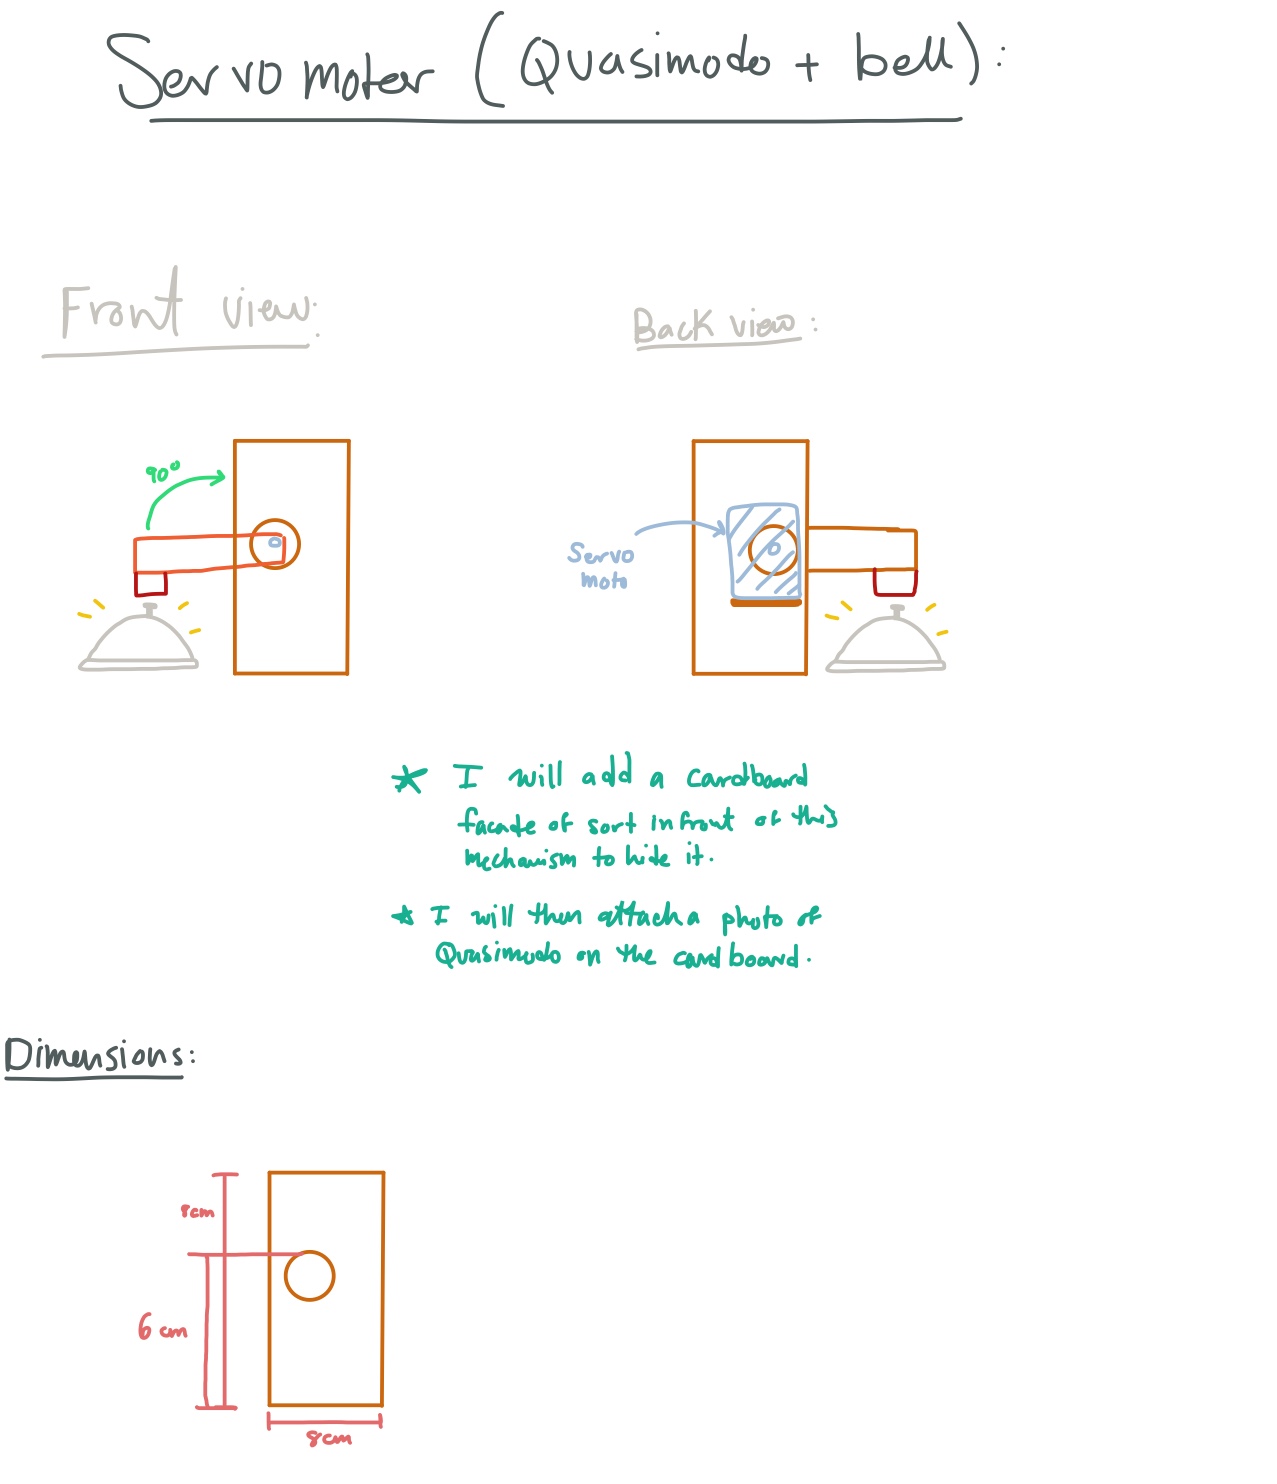 Servo moter (Quasimodo + bell):
Front view:
Back view:
90°
Servo
moto
* I will add a cardboard
facade of sort in front of this
mechanism to hide it.
* I will then attach a photo of
Quasimodo on the cardboard.
Dimensions:
8cm
6 cm
8cm